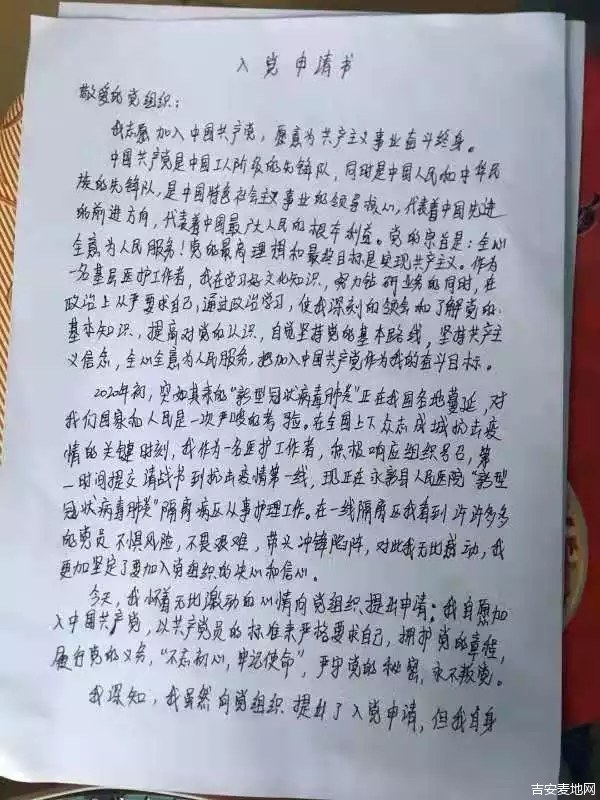 入党申请书
敬爱的党组织：
我志愿加入中国共产党，愿意为共产主义事业奋斗终身。
中国共产党是中国工人阶级的先锋队，同时是中国人民和中华民
族的先锋队，是中国特色社会主义事业的领导核心，代表着中国先进
的前进方向，代表着中国最广大人民的根本利益。党的宗旨是：全心
全意为人民服务！党的最高理想和最终目标是实现共产主义。作为
一名基层医护工作者，我在学习好文化知识，努力钻研业务的同时，在
政治上从严要求自己，通过政治学习，使我深刻的领会和了解党的
基本知识，提高对党的认识，自觉坚持党的基本路线，坚持共产主
义信念，全心全意为人民服务，把加入中国共产党作为我的奋斗目标。
2020年初，突如其来的“新型冠状病毒肺炎”正在我国各地蔓延，对
我们国家和人民是一次严峻的考验。在全国上下众志成城抗击疫
情的关键时刻，我作为一名医护工作者，积极响应组织号召，第
一时间提交请战书到抗击疫情第一线，现正在永新县人民医院“新型
冠状病毒肺炎”隔离病区从事护理工作。在一线隔离区我看到许许多多
的党员不惧风险，不畏艰难，带头冲锋陷阵，对此我无比感动，我
更加坚定了要加入党组织的决心和信心。
今天，我怀着无比激动的心情向党组织提出申请：我自愿加
入中国共产党，以共产党员的标准来严格要求自己，拥护党的章程，
履行党的义务，“不忘初心，牢记使命”，严守党的秘密，永不叛党。
我深知，我虽然向党组织提出了入党申请，但我自身
吉安麦地网